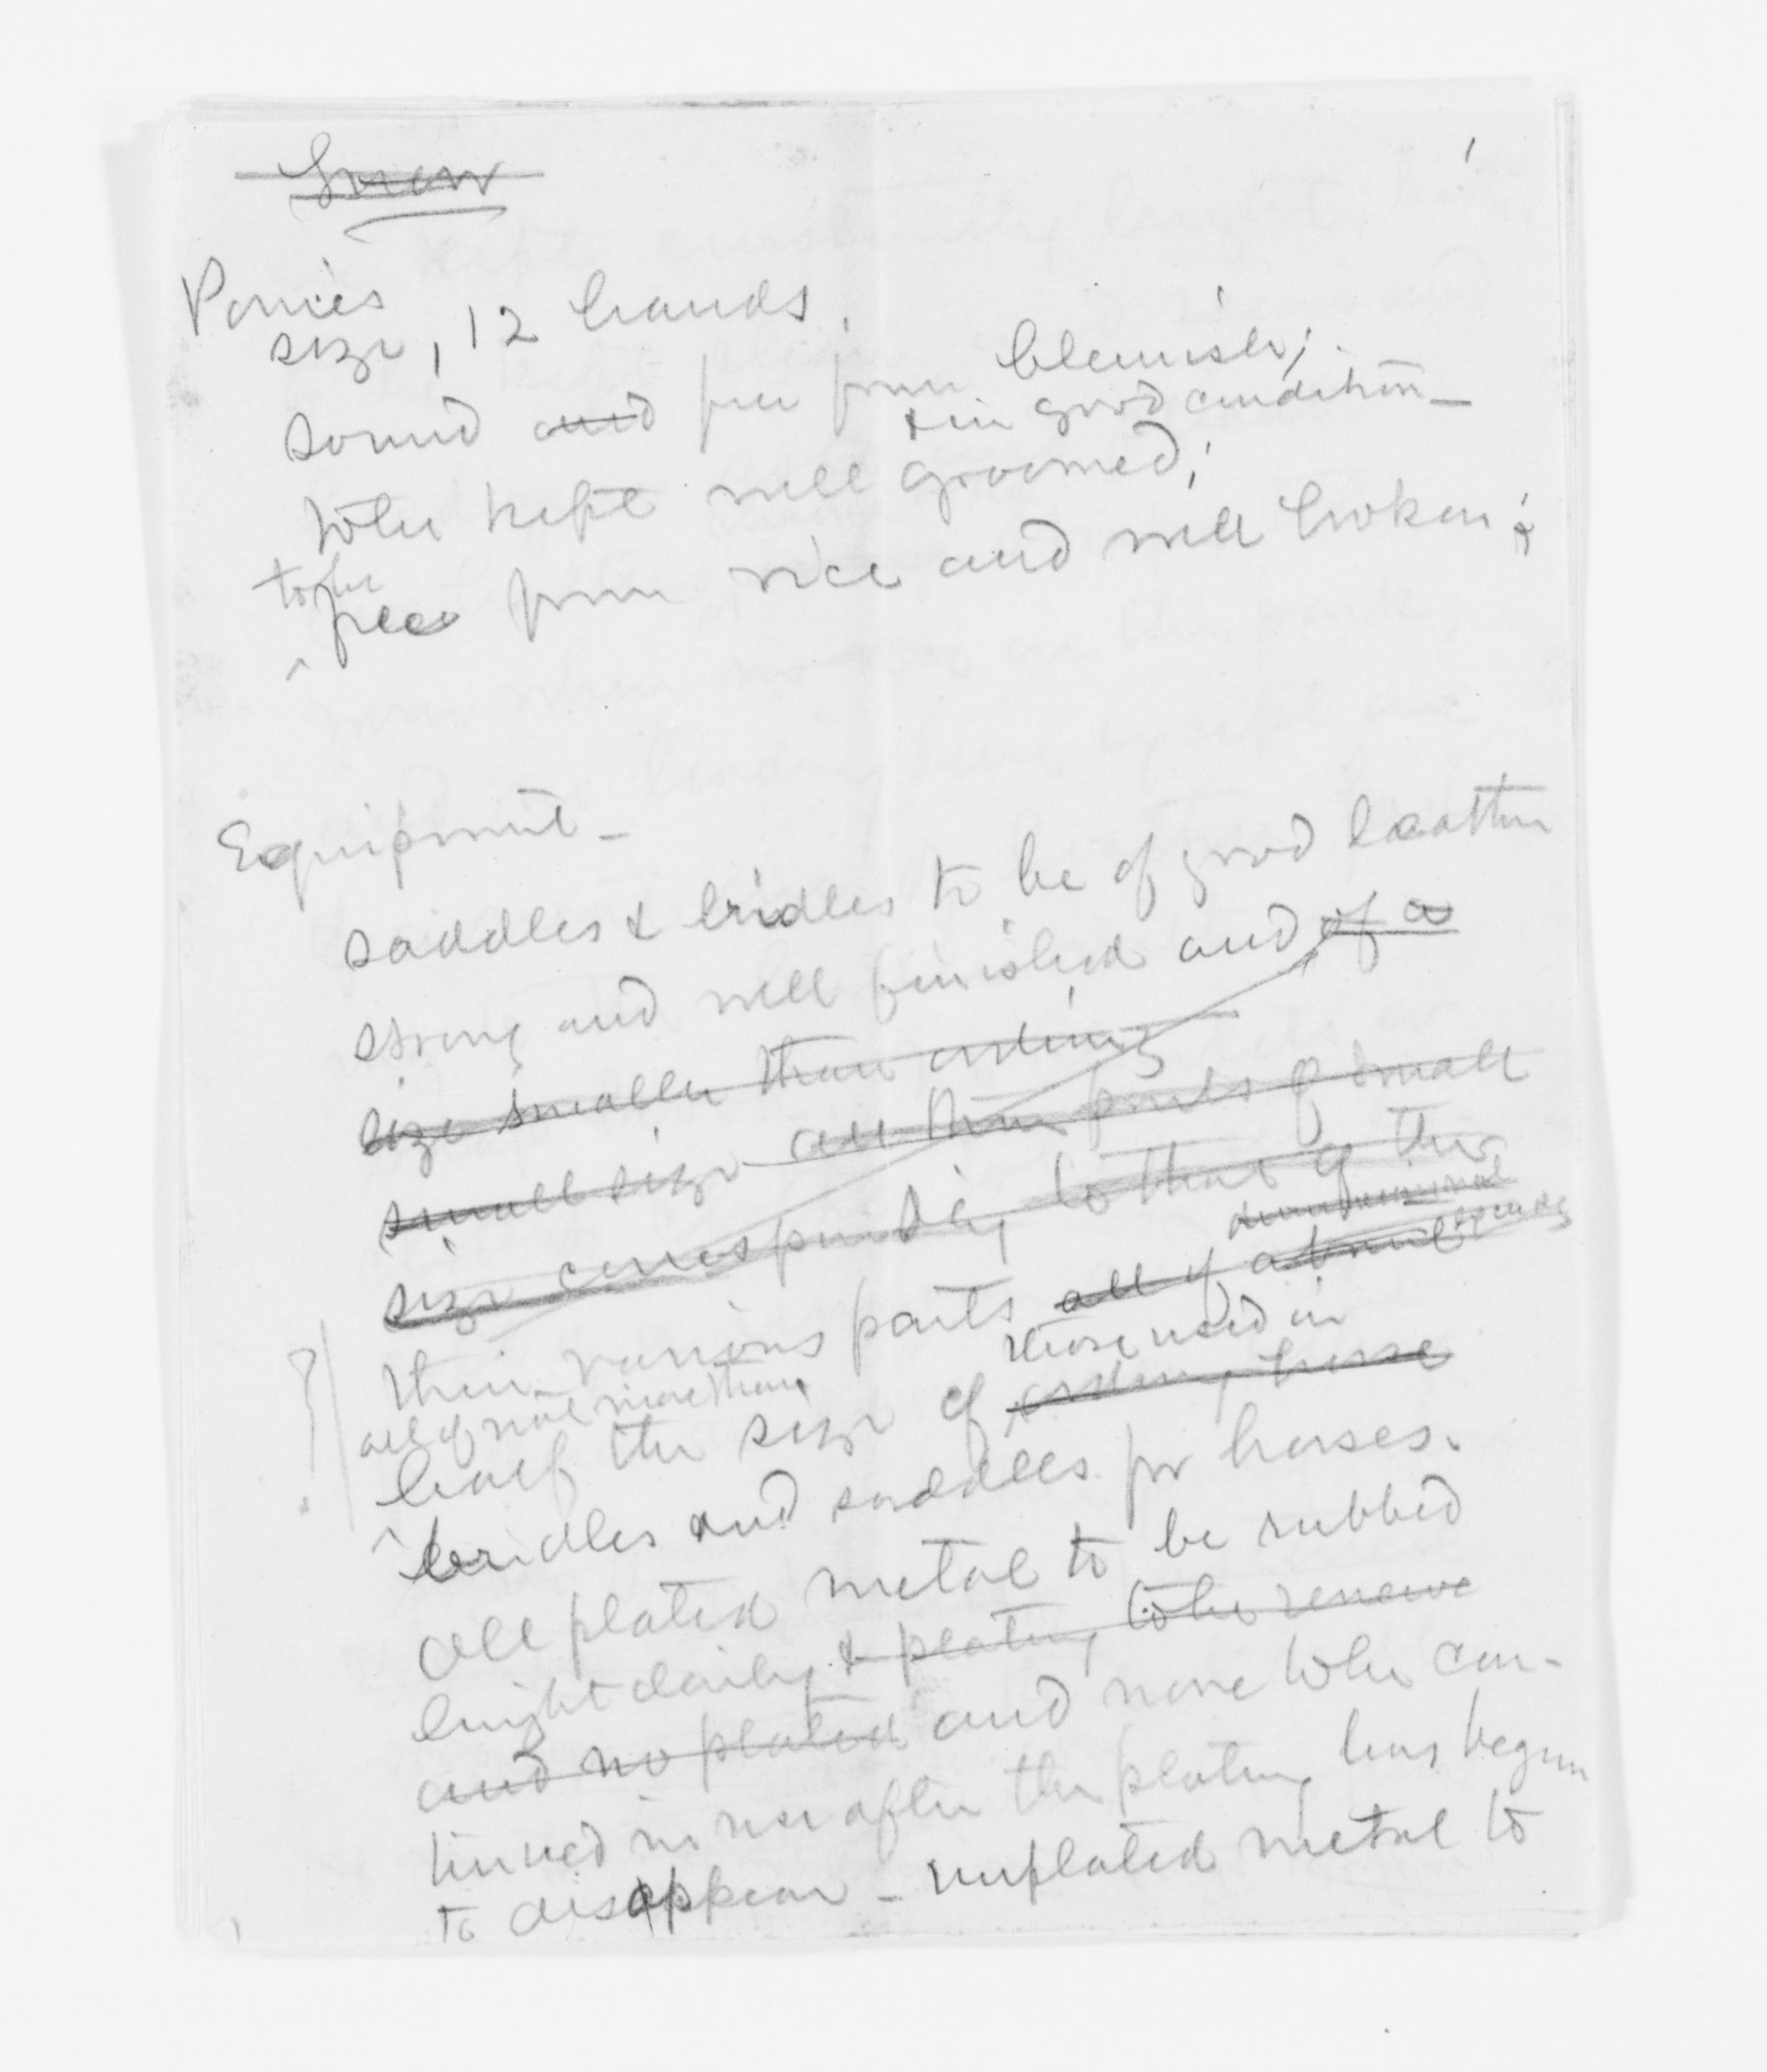 1
Ponies
size, 12 hands.
sound and free from blemish;
& in good condition -
to be kept well groomed;
to be
free from vice and well broken; &
Equipment -
saddles & bridles to be of good leather
strong and well finished and of a
size smaller than ordinary
small size all their parts of small
size corresponding to that of the
their various parts all of
those used in
all of not more than
half the size of ordinary horse
bridles and saddles for horses.
All plated metal to be rubbed
bright daily & plating to be renewe
and no plated and none to be con-
tinued in use after the plating has begun
to disappear - unplated metal to